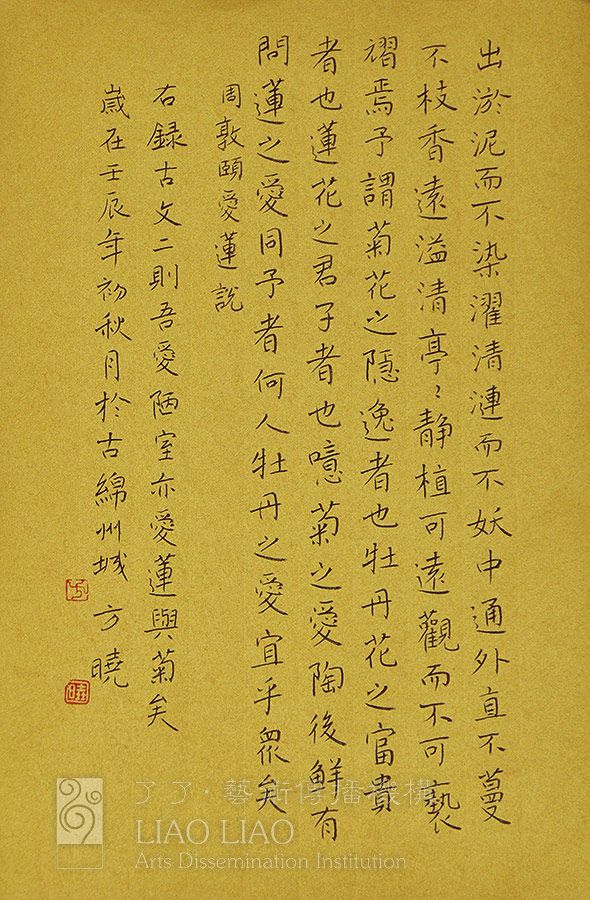 出淤泥而不染濯清漣而不妖中通外直不蔓
不枝香遠溢清亭〻静植可遠觀而不可褻
褶焉予謂菊花之隱逸者也牡丹花之富貴
者也蓮花之君子者也噫菊之愛陶後鮮有
問蓮之愛同予者何人牡丹之愛宜乎眾矣
周敦頤愛蓮說
右錄古文二則吾愛陋室亦愛蓮與菊矣
歲在壬辰年初秋月於古綿州城 方曉
了了·藝術傳播機構
LIAO LIAO
Arts Dissemination Institution